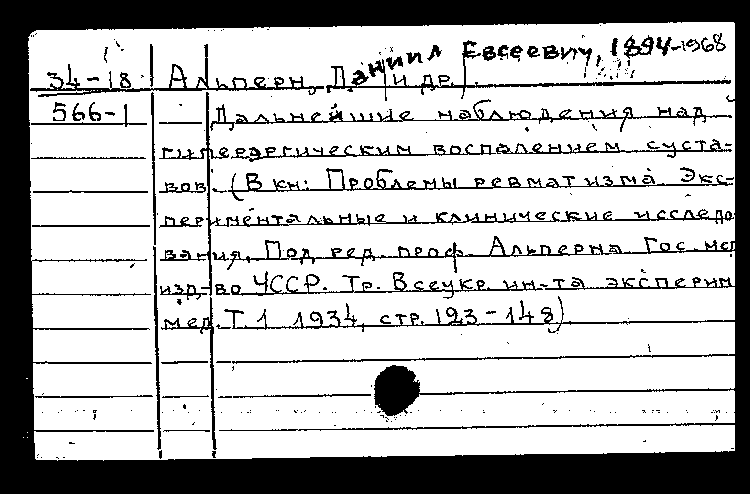 34-18 Альперн, Даниил Евсеевич, 1894-1968 (и др.).
566-1 Дальнейшие наблюдения над
гиперэргическим воспалением суста-
вов. (В кн: Проблемы ревматизма. Экс-
периментальные и клинические исследо
вания. Под ред. проф. Альперна. Гос. мед
изд-во УССР. Тр. Всеукр. ин-та эксперим
мед. Т. 1 1934, стр. 123-148)